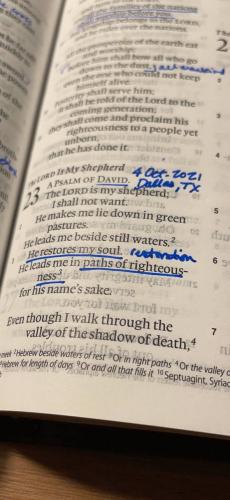 families of the nations
before you.
belongs to the LORD,
and he rules over the nations.
prosperous of the earth eat
before him shall bow all who go
down to the dust,
even the one who could not keep
himself alive.
Posterity shall serve him;
it shall be told of the Lord to the
coming generation;
they shall come and proclaim his
righteousness to a people yet
unborn,
that he has done it.
The LORD Is My Shepherd
4 Oct. 2021
A PSALM OF DAVID.
Dallas, TX
23 The LORD is my shepherd;
I shall not want.
He makes me lie down in green
pastures.
He leads me beside still waters.2
He restores my soul. restoration
He leads me in paths of righteous-
ness3
for his name's sake.
Even though I walk through the
valley of the shadow of death,4
2 Hebrew beside waters of rest 3 Or in right paths 4 Or the valley o
Hebrew for length of days 9 Or and all that fills it 10 Septuagint, Syriac
2
3
4
5
6
7